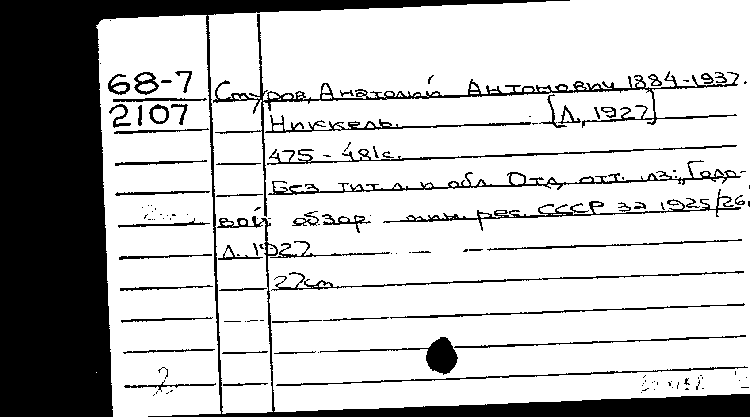 68-7
2107
Стуров, Анатолий Антонович 1884-1937.
Никкель. [Л., 1927]
475-481с.
Без тит. л. и обл. Отд. отт. из: „Годо-
вой обзор мин. рес. СССР за 1925/26,
Л. 1927
27см
2